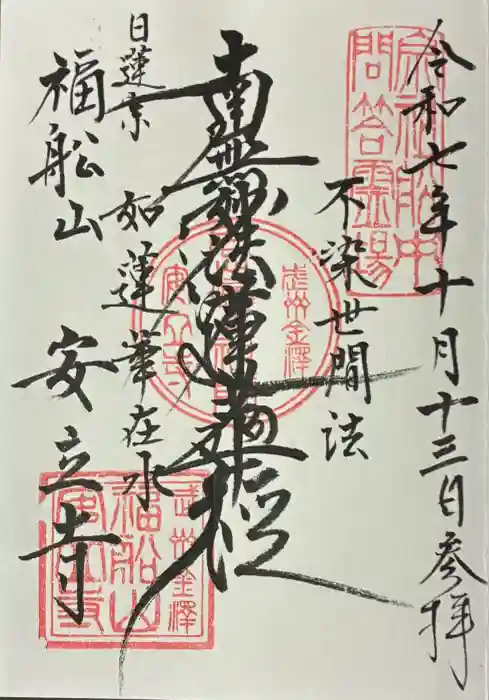 令和七年十月十三日参拝
宗祖船中
問答霊場
不染世間法
南無妙法蓮華経
武州金澤
安立寺
如蓮華在水
日蓮宗
福船山
安立寺
武州金澤
福船山
安立寺